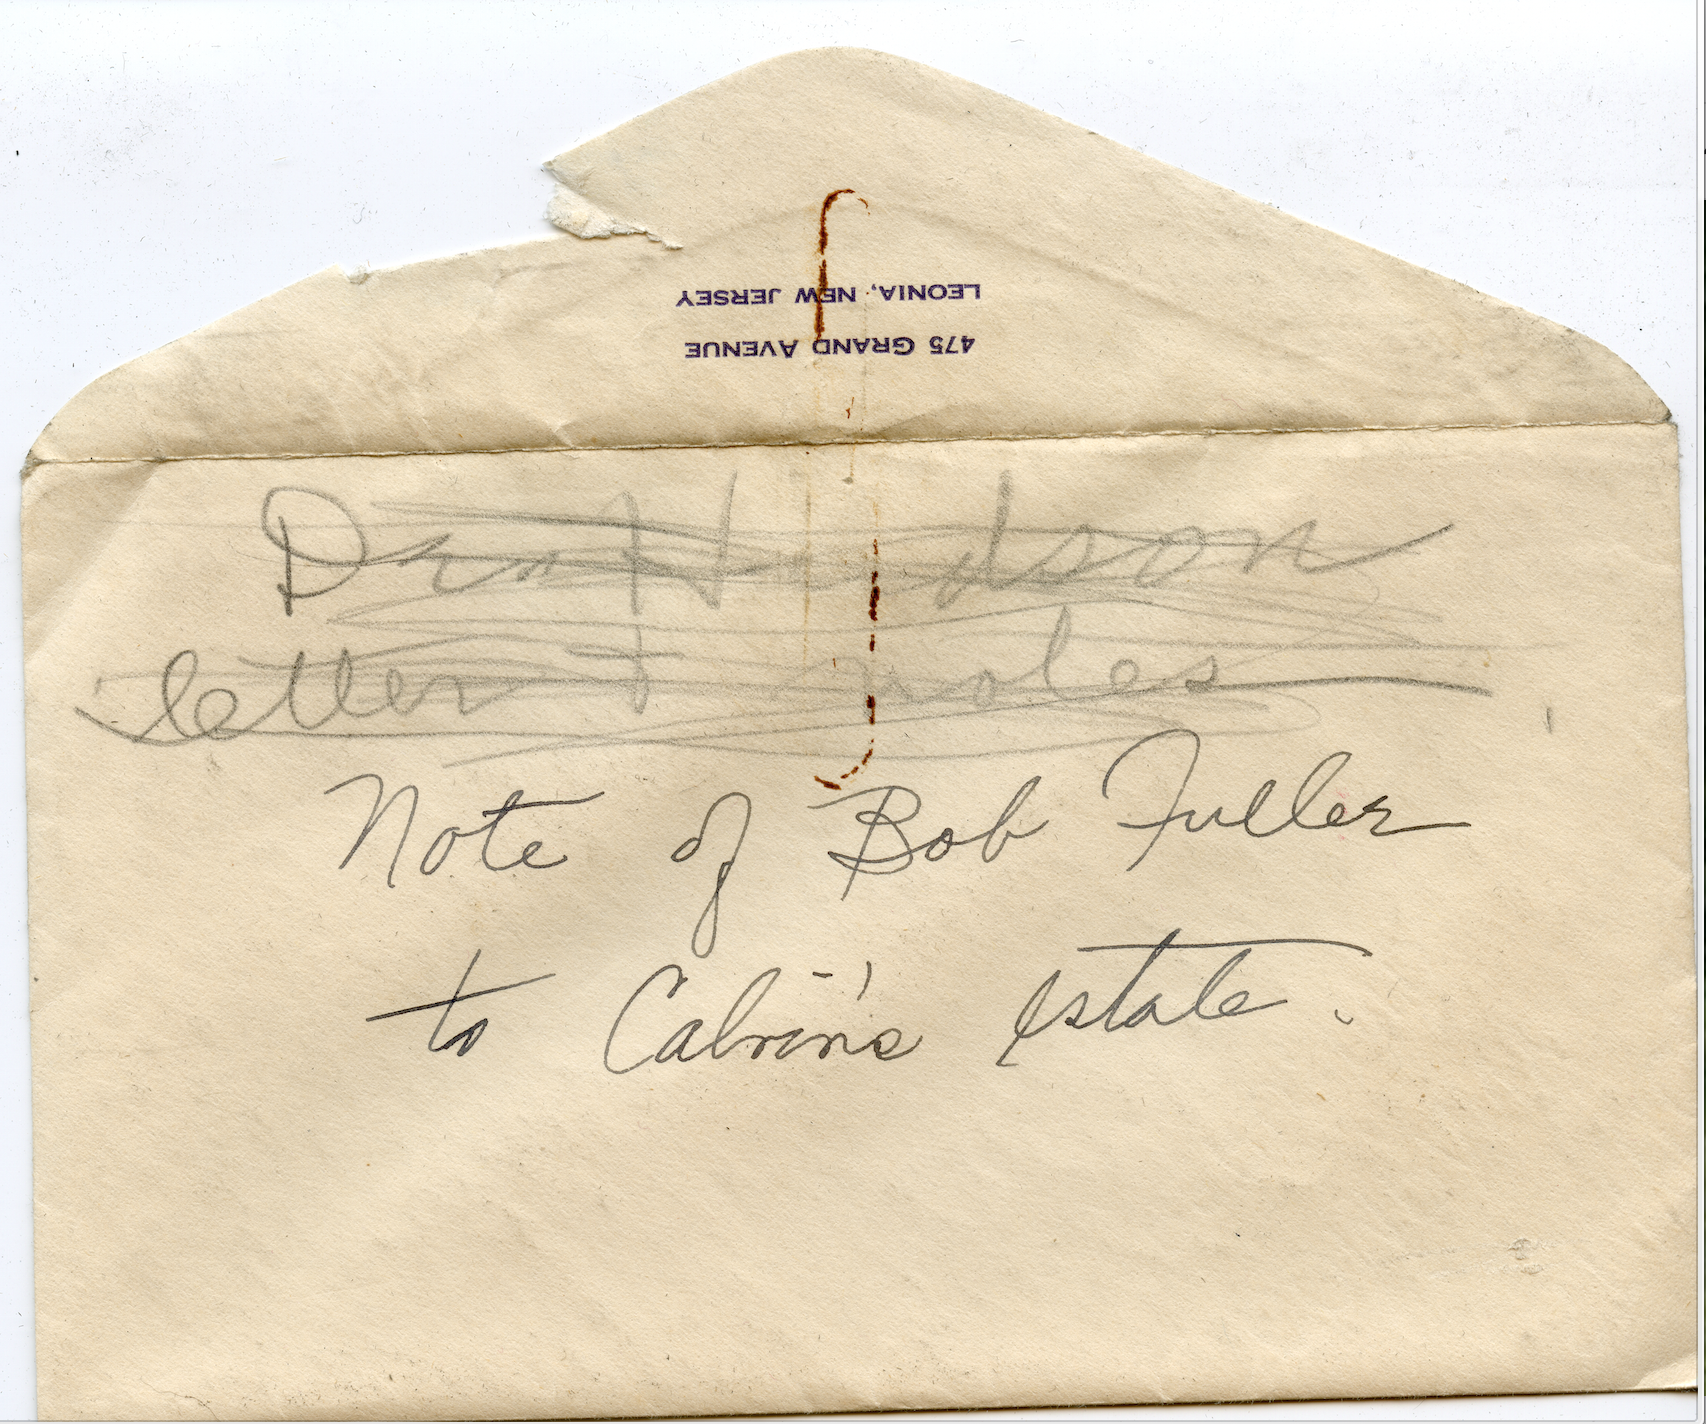 475 GRAND AVENUE
LEONIA, NEW JERSEY
letter + notes
Note of Bob Fuller
to Calvin's estate.